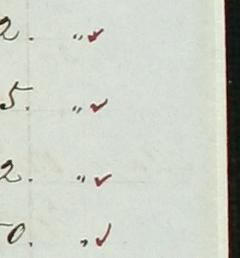 2. " ✓
5. " ✓
2. " ✓
0. " ✓